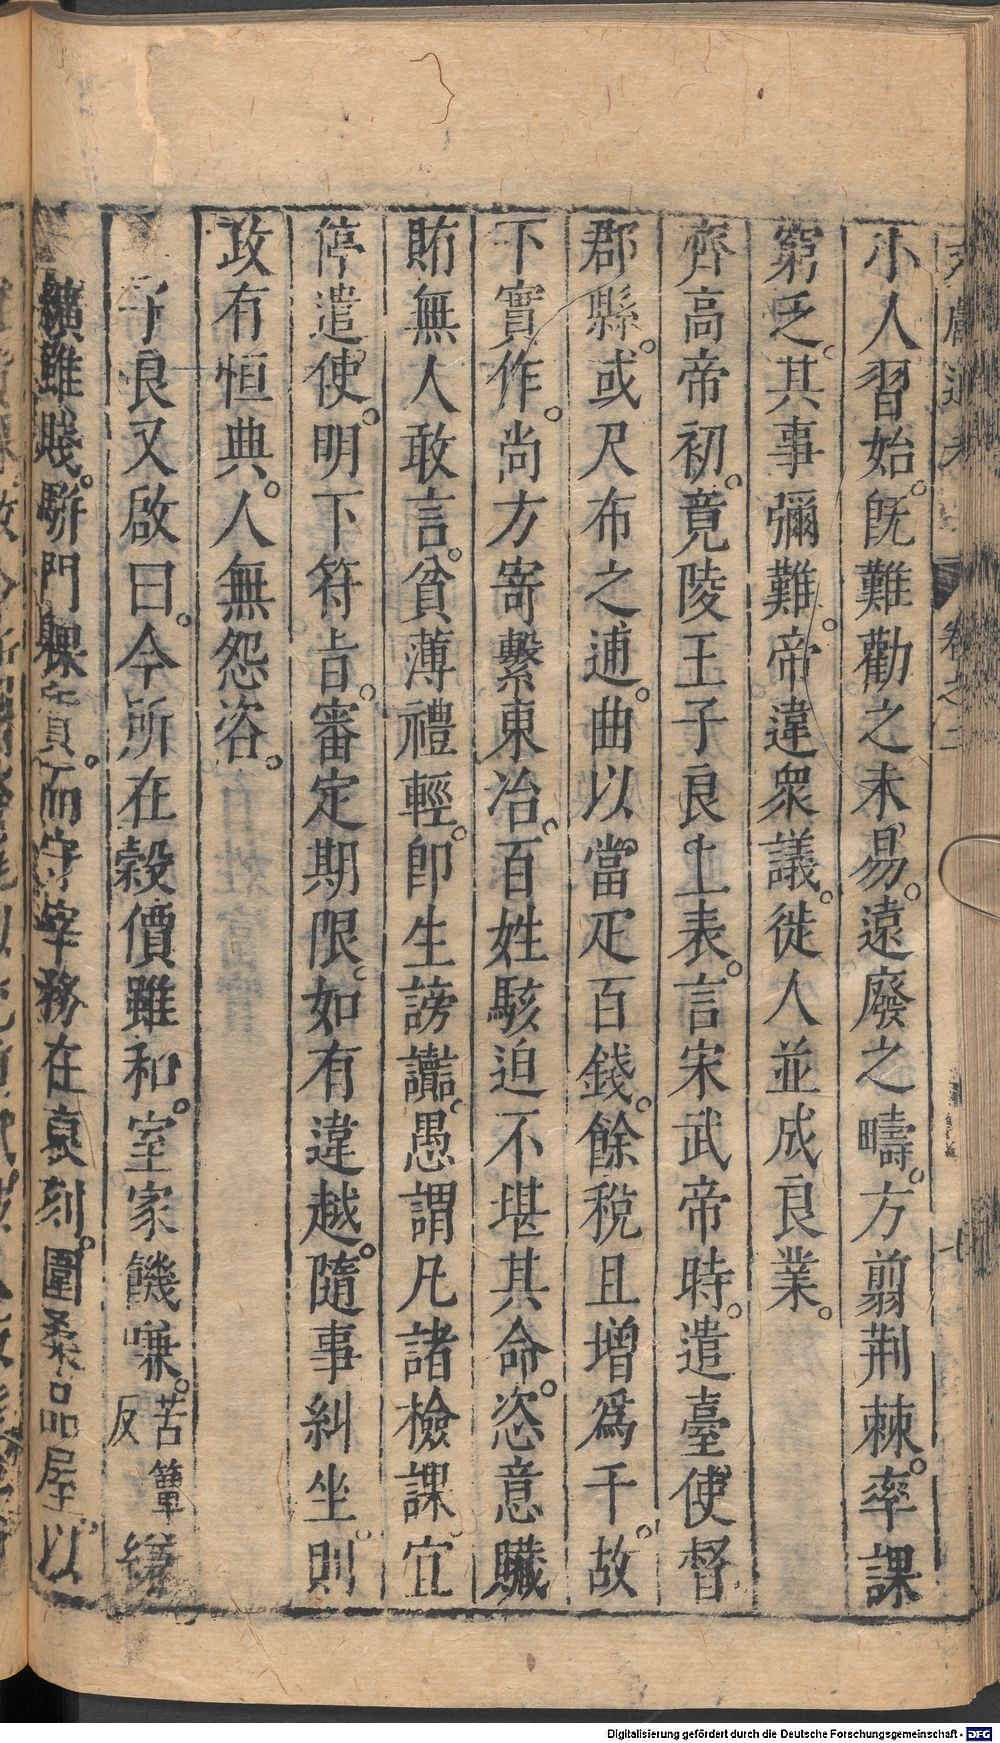 小人習始。旣難勸之未易。遠廢之疇。方翦荆棘。率課
窮乏。其事彌難。帝違衆議。徙人並成良業。
齊高帝初。竟陵王子良上表。言宋武帝時。遣臺使督
郡縣。或尺布之逋。曲以當疋百錢。餘稅且增爲千。故
下實作。尚方寄繫東冶。百姓駭迫不堪其命。恣意贓
賄無人敢言。貧薄禮輕。卽生謗讟。愚謂凡諸檢課宜
停遣使。明下符旨。審定期限。如有違越。隨事糾坐。則
政有恒典。人無怨咨。
子良又啟曰。今所在穀價雖和。室家饑嗛。苦簟反
纊雖賤。駢門躶質。而守宰務在裒刻。圍桑品屋。以
卷之二
Digitalisierung gefördert durch die Deutsche Forschungsgemeinschaft - DFG